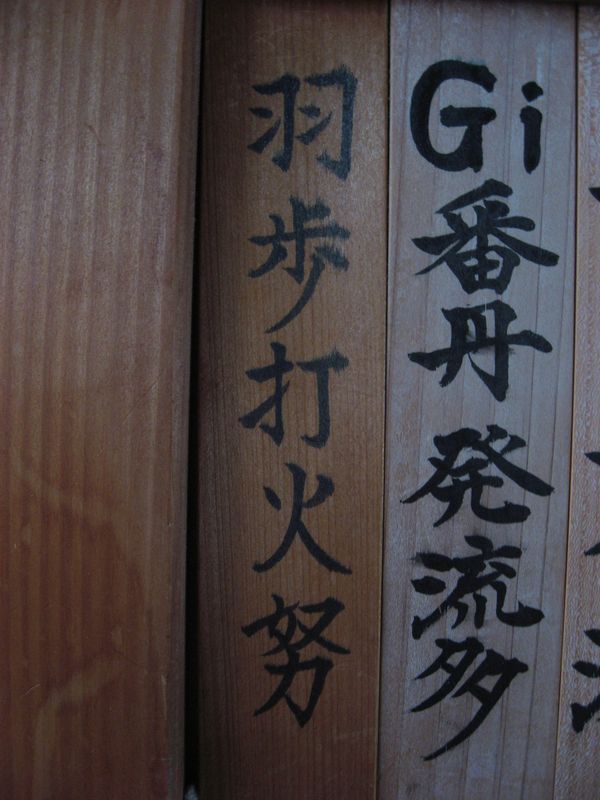 Gi番丹 発流多
羽歩打火努